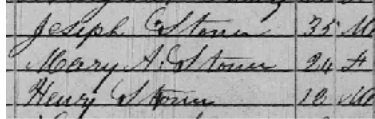 Joseph C Stover 35 M
Mary A. Stover 24 F
Henry Stover 10 M